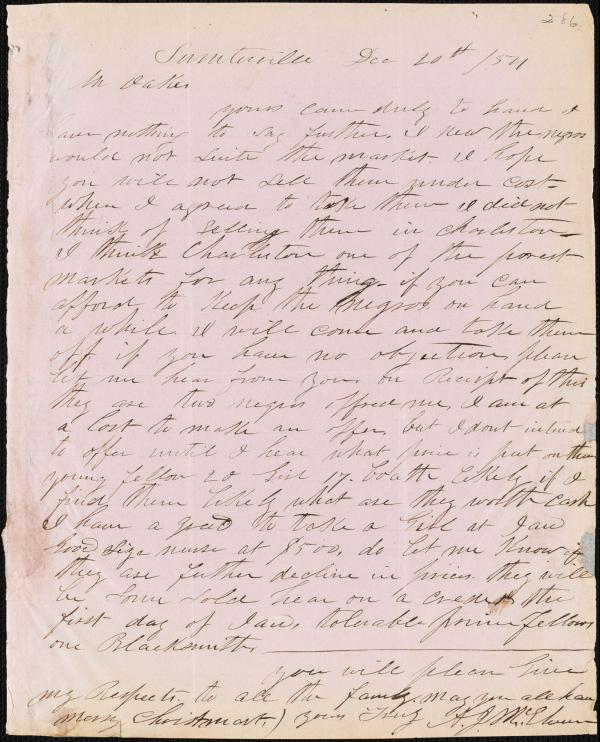 286
Sumterville Dec 20th /54
Mr Oakes
yours came duly to hand I
have nothing to say further. I new the negros
would not suite the market. I hope
you will not sell them under cost
when I agreed to take them I did not
think of selling them in charleston
I think Charleston one of the porest
markets for any thing. if you can
afford to keep the negros on hand
a while I will come and take them
off if you have no objection please
let me hear from you on Recipt of this
they are two negros offred me, I am at
a lost to make an offer, but I dont intend
to offer until I hear what price is put on them
young fellow 20 Girl 17. boath likely if I
find them likely what are they worth cash
I have a great to take a Girl at Jan
Good size nurse at $500, do let me know if
they are further decline in prices they will
be some sold hear on a credit the
first day of Jan, toluable prime fellows
one Blacksmith
you will please Give
my Respects to all the family. may you all have
merry Christmast,) yours Truly A. J. McElveen